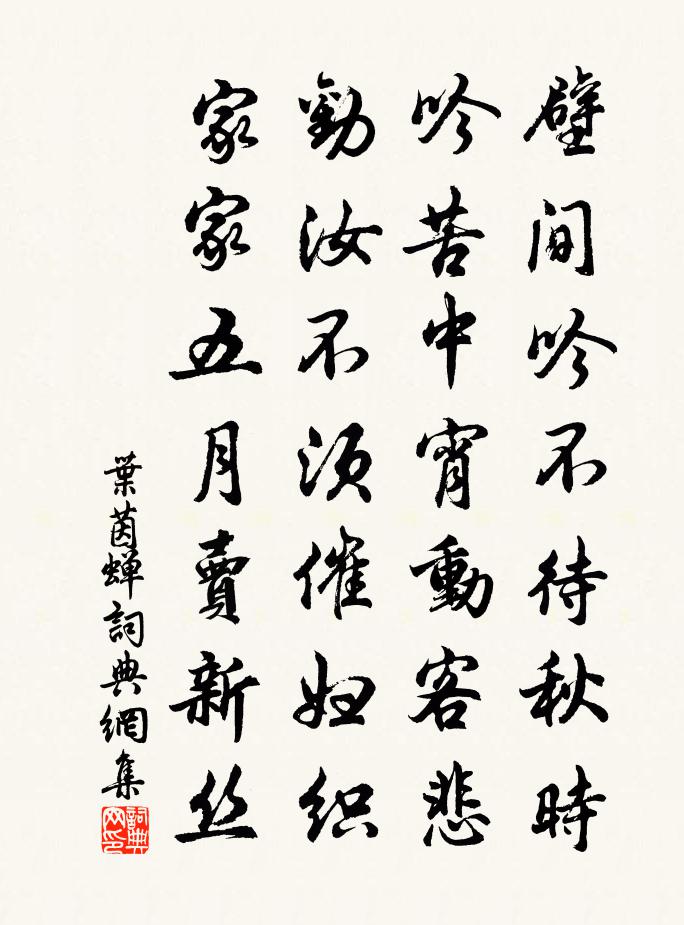 壁間吟不待秋時
吟苦中宵動客悲
勸汝不須催妇织
家家五月賣新丝
葉茵蟬詞典網集
詞典网印